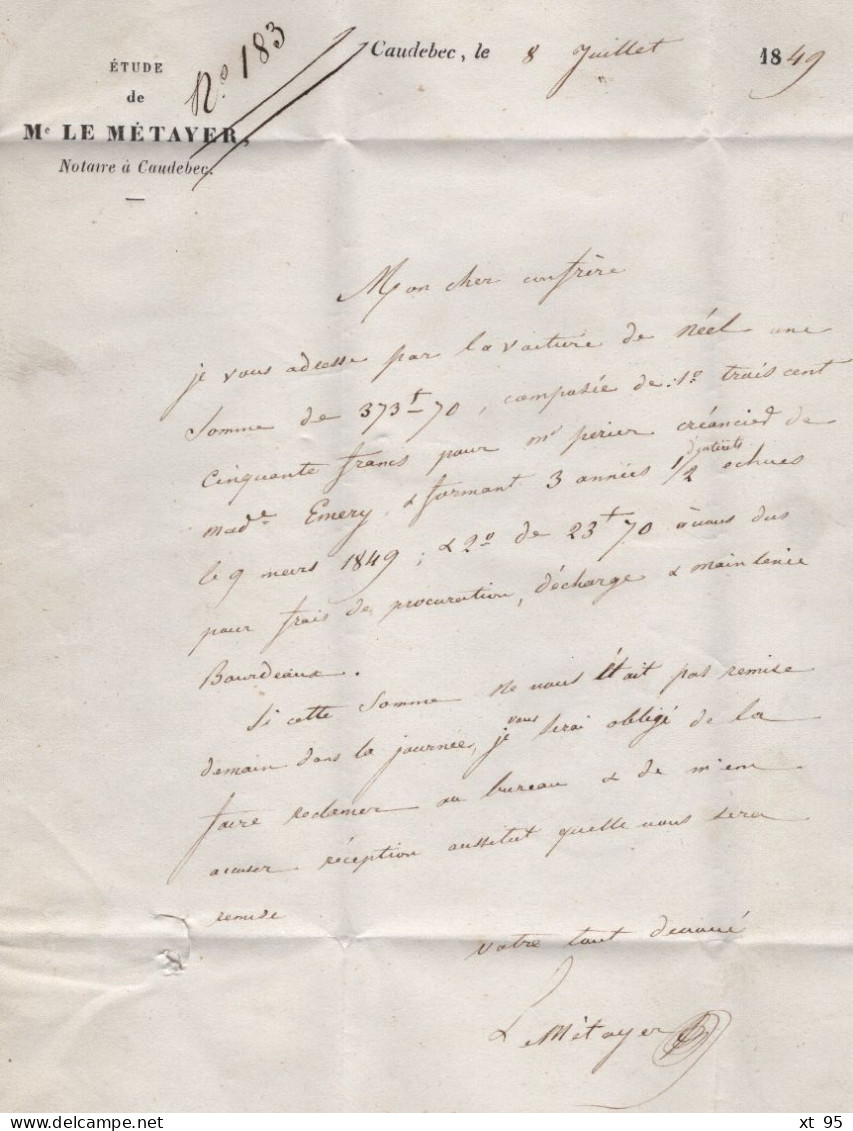 ÉTUDE
de
Me LE MÉTAYER,
Notaire à Caudebec.
No. 183
Caudebec, le 8 Juillet 1849
Mon cher confrère
je vous adresse par la voiture de Néel une
Somme de 373f 70, composée de: 1º trois cent
Cinquante francs pour mr périer créancier de
made Emery & formant 3 années 1/2 d'intérêts échues
le 9 mars 1849; & 2º de 23f 70 à vous dus
pour frais de procuration, décharge & main levée
Bourdeaux.
Si cette somme ne vous était pas remise
demain dans la journée, je vous serai obligé de la
faire réclamer au bureau & de m'en
accuser réception aussitut quelle vous sera
remise
votre tout dévoué
Le Métayer
delcampe.net
xt 95